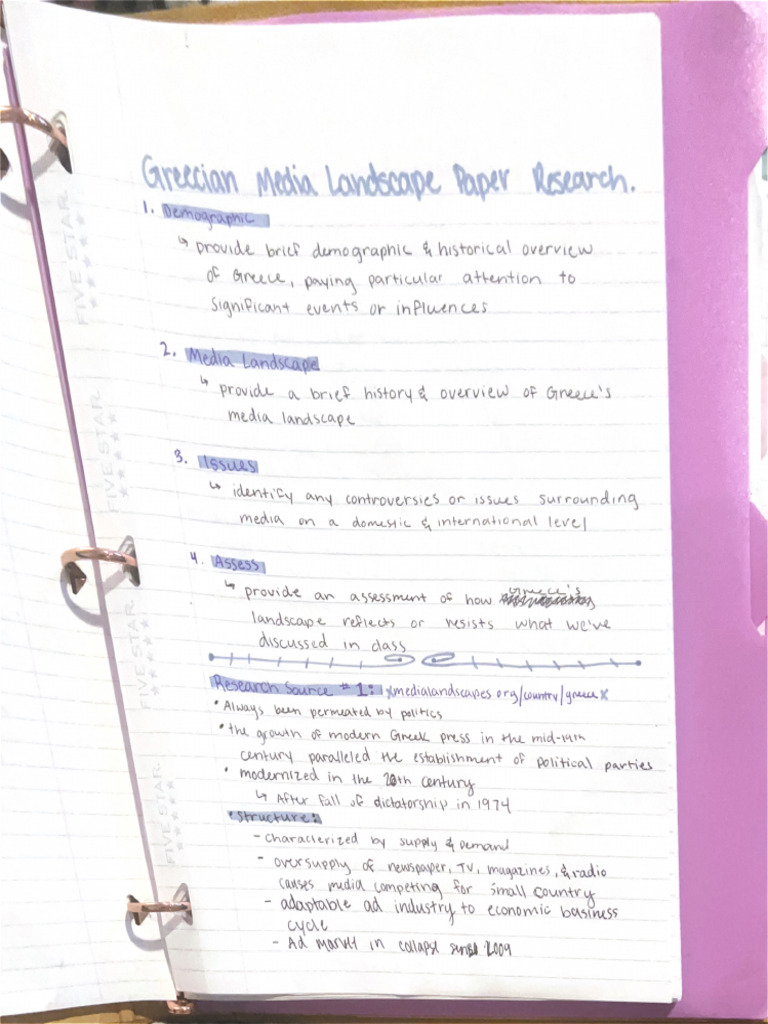 Greecian Media Landscape Paper Research.
1. Demographic
↳ provide brief demographic & historical overview
of Greece, paying particular attention to
significant events or influences
2. Media Landscape
↳ provide a brief history & overview of Greece's
media landscape
3. Issues
↳ identify any controversies or issues surrounding
media on a domestic & international level
4. Assess
↳ provide an assessment of how Greece's
landscape reflects or resists what we've
discussed in class
Research Source #1: *medialandscapes.org/country/greece*
• Always been permeated by politics
• the growth of modern Greek press in the mid-19th
century paralleled the establishment of political parties
• modernized in the 20th century
↳ After fall of dictatorship in 1974
• Structure:
- characterized by supply & demand
- oversupply of newspaper, TV, magazines, & radio
causes media competing for small country
- adaptable ad industry to economic business
cycle
- Ad market in collapse 2009
FIVE STAR
FIVE STAR
FIVE STAR
FIVE STAR